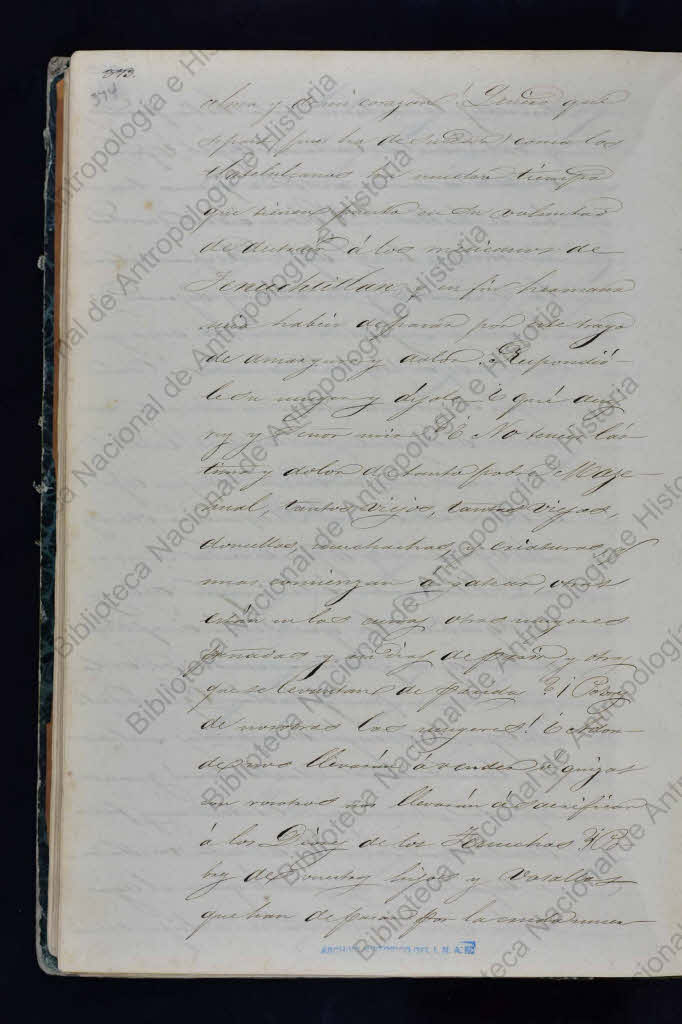 393.
394
alma y de mi corazon! Dconso que
sepais pues ha de suceder, como los
Tlatelulcanos ha muchos tiempos
que tienen puesto en su voluntad
de destruir á los mexicanos de
Tenuchtitlan, y en fin hermana
mia habeis de pasar por este trago
de amargura y dolor. Respondió-
le su muger y díjole: ¿ qué
rey y Señor mio? ¿ No teneis lás-
tima y dolor de tanto pobre Maze-
hual, tantos viejos, tantas viejas,
doncellas, muchachas, y criaturas, q.
unas comienzan á gatear, otras
están en las cunas, otras mugeres
preñadas y en dias de parir, y otras
que se levantan de paridas? ¡ Pobres
de nosotras las mugeres! ¿ Adon-
de nos llevarán á vender? ó quizas
con nosotros nos llevarán á sacrificar
á los Dioses de los Tenuchas
hoy de vuestros hijos y vasallos,
que han de pasar por la cruda
ARCHIVO HISTORICO DEL I. N. A. H.
Biblioteca Nacional de Antropología e Historia